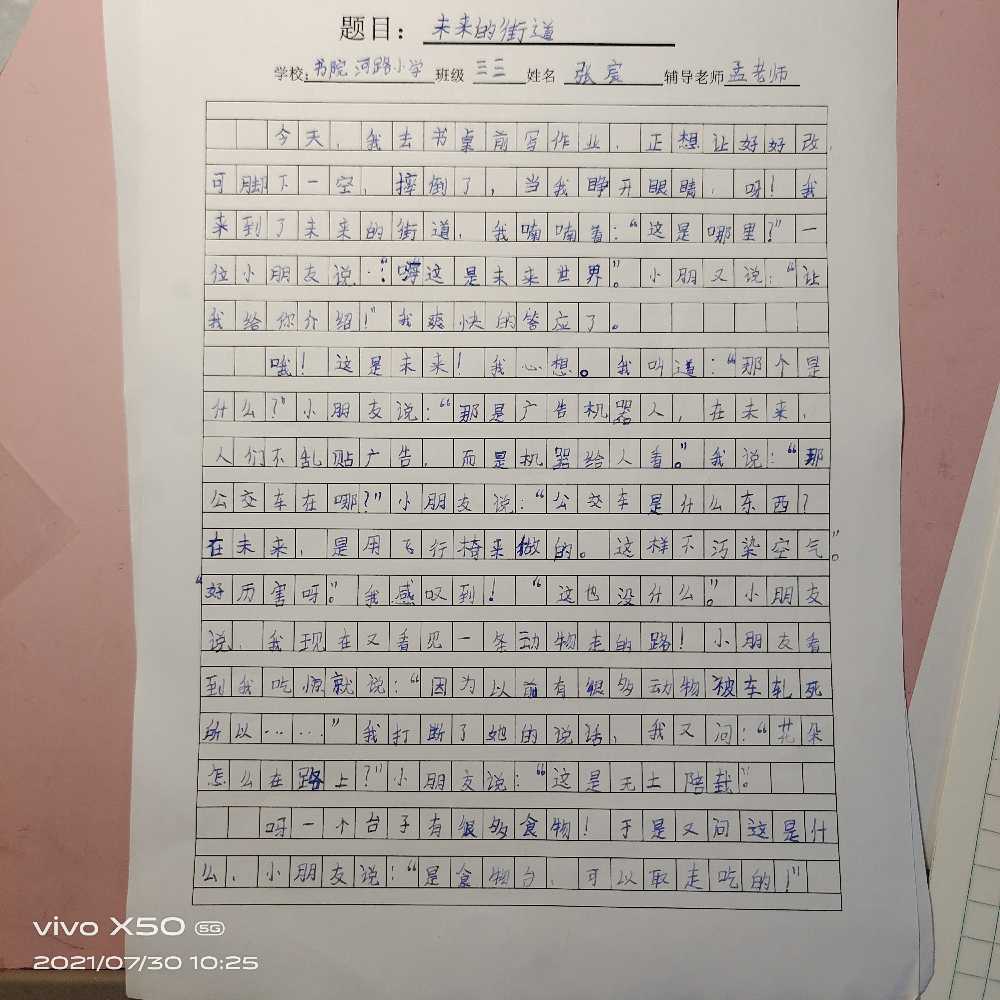 题目：未来的街道
学校：书院河路小学 班级 三三 姓名 张宸 辅导老师 孟老师
今天，我去书桌前写作业，正想让好好改，
可脚下一空，摔倒了，当我睁开眼睛，呀！我
来到了未来的街道，我喃喃着：“这是哪里？”一
位小朋友说：“嗨这是未来世界。”小朋又说：“让
我给你介绍！”我爽快的答应了。
哦！这是未来！我心想。我叫道：“那个是
什么？”小朋友说：“那是广告机器人，在未来，
人们不乱贴广告，而是机器给人看。”我说：“那
公交车在哪？”小朋友说：“公交车是什么东西？
在未来，是用飞行椅来做的。这样不污染空气。”
“好历害呀。”我感叹到！“这也没什么。”小朋友
说，我现在又看见一条动物走的路！小朋友看
到我吃惊就说：“因为以前有很多动物被车轧死
所以……”我打断了她的说话，我又问：“花朵
怎么在路上？”小朋友说：“这是无土陪载。”
呀一个台子有很多食物！于是又问这是什
么，小朋友说：“是食物台，可以取走吃的！”
vivo X50 5G
2021/07/30 10:25